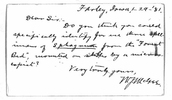 Iowa, 1-29-'81.
Dear Sir:
Do you think you could
specifically identify for me some
imens of Sphagnum from the "Forest
Bed", mounted on slides by a micros-
copist?
Very truly yours,